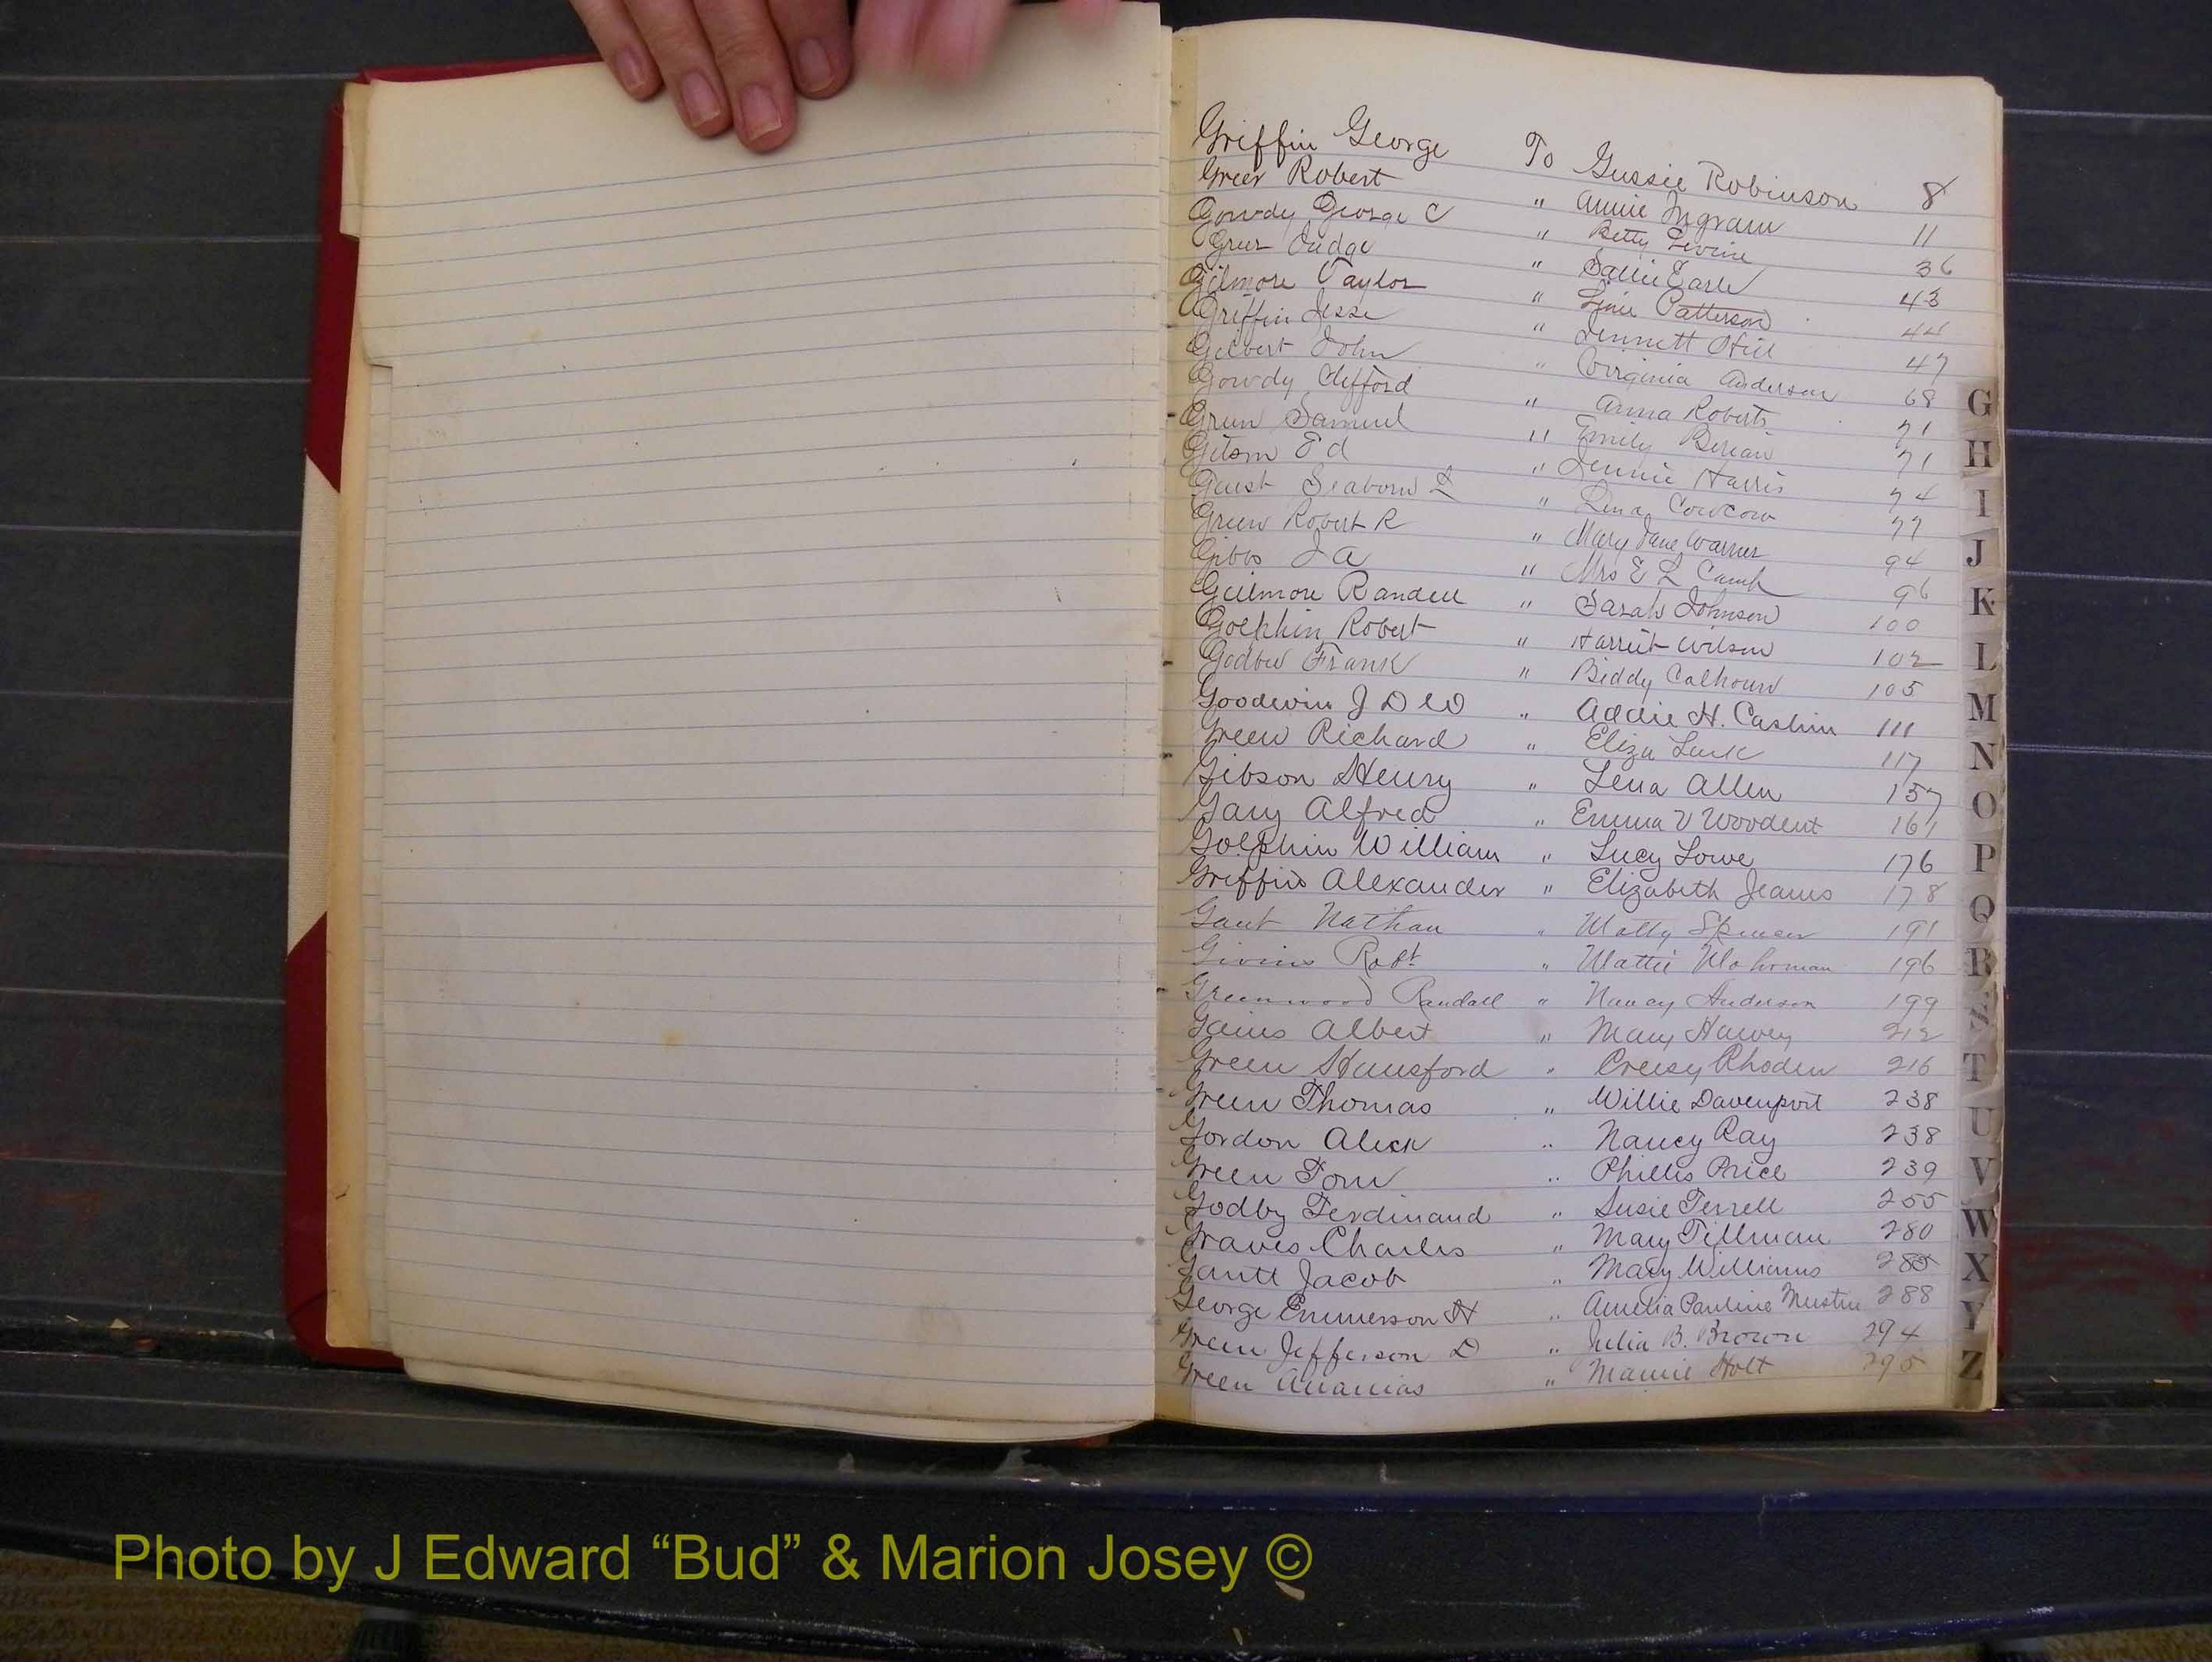 Griffin George To Gussie Robinson 8
Greer Robert " Annie Ingram 11
Gowdy George C " Betty Levine 36
Greer Judge " Sallie Earle 43
Gilmore Taylor " Patterson 44
Griffin Jesse " Hill 47
Gilbert John " Virginia Anderson 68
Gowdy Clifford " Anna Roberts 71
Green Samuel " Emily 71
Ed " Jennie Harris 74
Seaborn " Lina 77
Green Robert R " Mary Jane Warner 94
Gibbs J A " Mrs E L Camp 96
Gilmore Randell " Sarah Johnson 100
Golphin Robert " Harriet Wilson 102
Frank " Biddy Calhoun 105
Goodwin J D W " Addie H. Cashin 111
Green Richard " Eliza Lark 117
Gibson Henry " Lena Allen 157
Gary Alfred " Emma V Woodent 161
Golphin William " Lucy Lowe 176
Griffin Alexander " Elizabeth Jeams 178
Gant Nathan " Spencer 191
Givins Robt " Mattie 196
Greenwood Randall " Nancy Anderson 199
Gains Albert " Mary Harvey 212
Green Hansford " Creesy Rhoden 216
Green Thomas " Willie Davenport 238
Gordon Alick " Nancy Ray 238
Green Tom " Phillis Price 239
Godby Ferdinand " Susie Terrell 255
Graves Charles " Mary Tillman 280
Gantt Jacob " Mary Williams 285
George Emmerson H " Amelia Pauline Mustin 288
Green Jefferson D " Julia B. Brown 294
Green Ananias " Mamie Holt 295
G
H
I
J
K
L
M
N
O
P
Q
R
S
T
U
V
W
X
Y
Z
Photo by J Edward “Bud” & Marion Josey ©